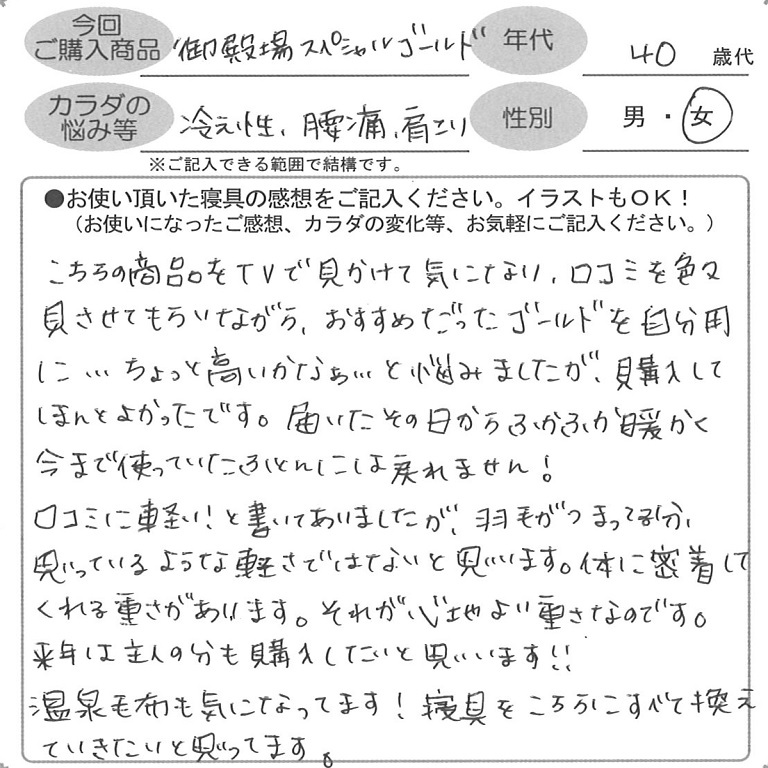 今回
ご購入商品
御殿場スペシャルゴールド
年代
40 歳代
カラダの
悩み等
冷え性、腰痛、肩こり
性別
男・女
※ご記入できる範囲で結構です。
●お使い頂いた寝具の感想をご記入ください。イラストもOK!
(お使いになったご感想、カラダの変化等、お気軽にご記入ください。)
こちらの商品をTVで見かけて気になり、口コミを色々
見させてもらいながら、おすすめだったゴールドを自分用
に…ちょっと高いかなぁ…と悩みましたが、購入して
ほんとよかったです。届いたその日からふかふか暖かく
今まで使っていたふとんには戻れません!
口コミに軽い!と書いてありましたが、羽毛がつまってる分、
思っているような軽さではないと思います。体に密着して
くれる重さがあります。それが心地よい重さなのです。
来年は主人の分も購入したいと思います!!
温泉毛布も気になってます!寝具をこちらにすべて換え
ていきたいと思ってます。